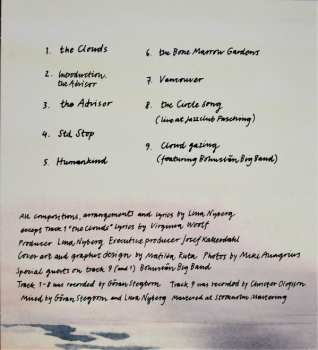 1. the Clouds
2. Introduction.
the Advisor
3. the Advisor
4. Std Stop
5. Humankind
6. the Bone Marrow Gardens
7. Vancouver
8 the Circle Song
(live at Jazzclub Fasching)
9. Cloud gazing
(featuring Bohuslän Big Band)
All compositions, arrangements and lyrics by Lina Nyberg
except Track 1 "the Clouds" lyrics by Virginia Woolf
Producer Lina Nyberg Executive producer Josef Kallerdahl
Cover art and graphic design by Matilda Ruta Photos by Miki Anagrius
Special guests on track 9 (and 1) Bohuslän Big Band
Track 1-8 was recorded by Göran Stegborn Track 9 was recorded by Christer Olofsson
Mixed by Göran Stegborn and Lina Nyberg Mastered at Stockholm Mastering